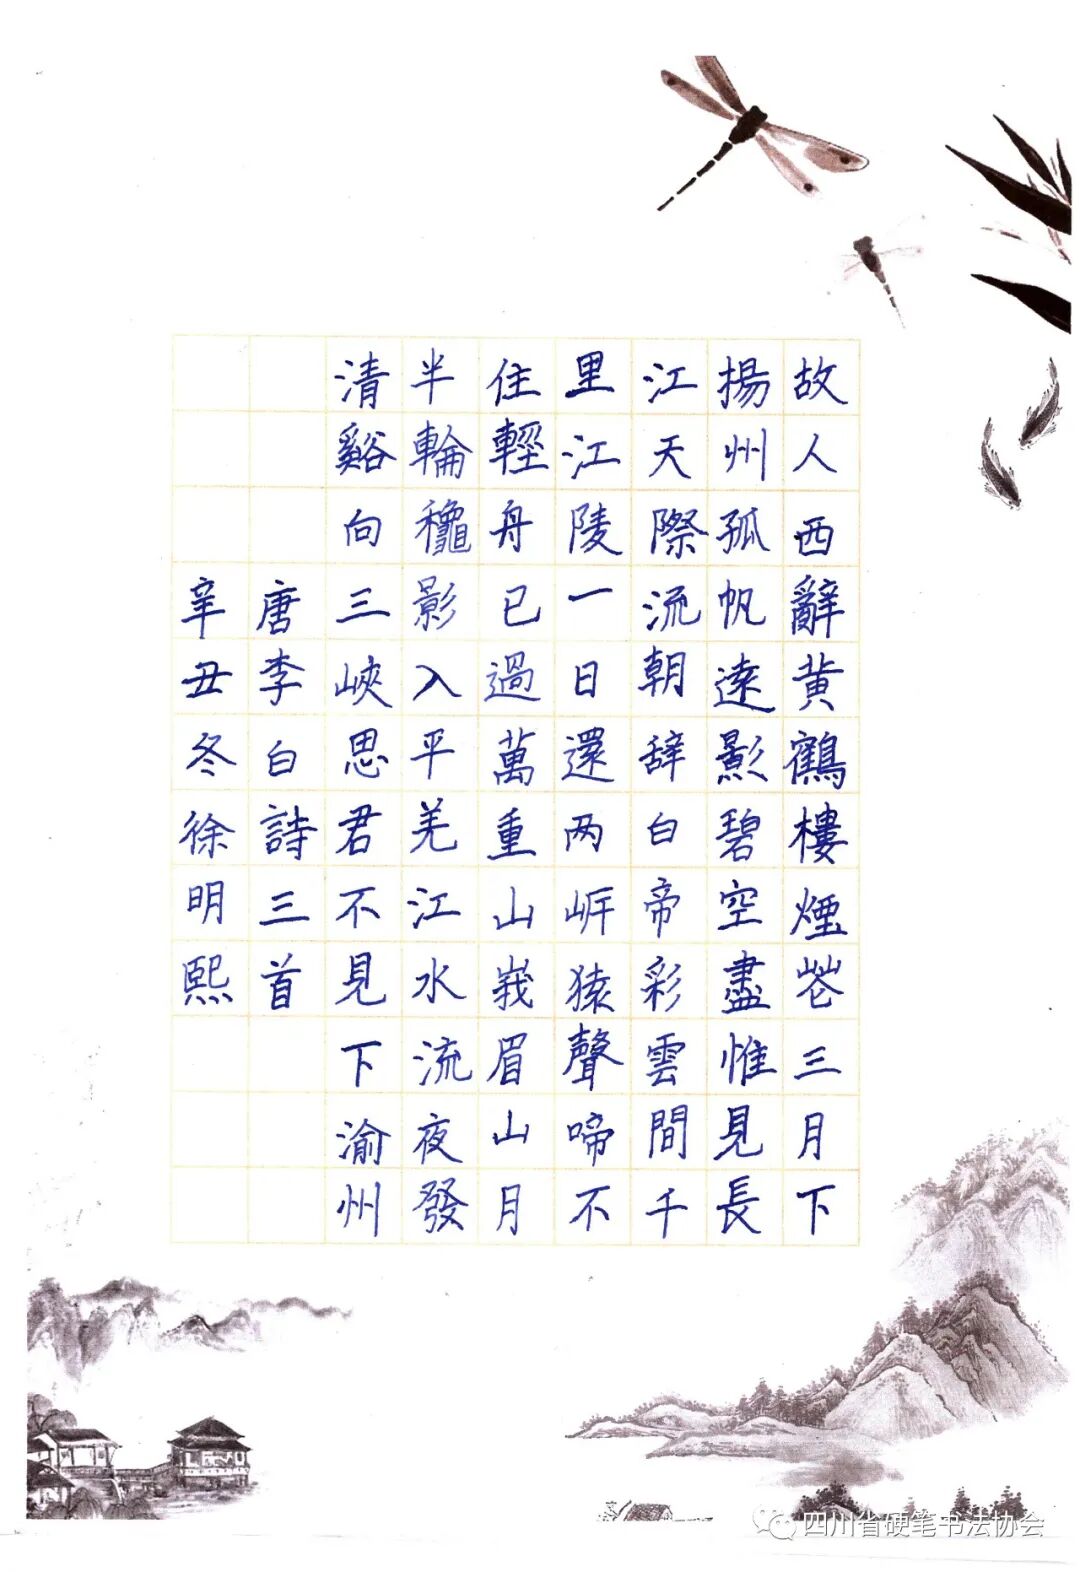 故人西辭黄鶴樓煙花三月下
揚州孤帆遠影碧空盡惟見長
江天際流朝辞白帝彩雲間千
里江陵一日還两岸猿聲啼不
住輕舟已過萬重山峩眉山月
半輪龝影入平羌江水流夜發
清谿向三峽思君不見下渝州
唐李白詩三首
辛丑冬徐明熙
四川省硬笔书法协会